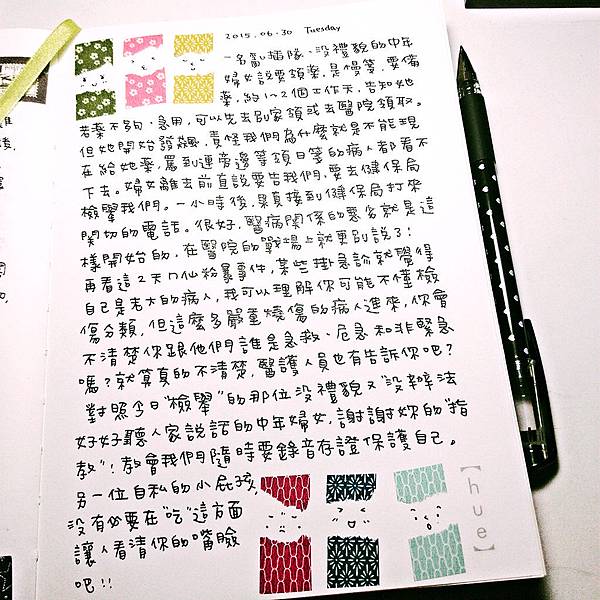 2015.06.30 Tuesday
一名亂插隊、沒禮貌的中年
婦女說要領藥,是慢箋,要備
藥,約1~2個工作天,告知她
若藥不夠、急用,可以先去別家領或去醫院領取。
但她開始發飆,責怪我們為什麼就是不能現
在給她藥,罵到連旁邊等領日箋的病人都看不
下去。婦女離去前直說要告我們,要去健保局
檢舉我們。一小時後,果真接到健保局打來
關切的電話。很好,醫病關係的惡劣就是這
樣開始的,在醫院的戰場上就更別說了!
再看這2天八仙粉塵事件,某些掛急診就覺得
自己是老大的病人,我可以理解你可能不懂檢
傷分類,但這麼多嚴重燒傷的病人進來,你會
不清楚你跟他們誰是急救、危急和非緊急
嗎?就算真的不清楚,醫護人員也有告訴你吧?
對照今日"檢舉"的那位沒禮貌又"沒辦法
好好聽人家說話的中年婦女,謝謝妳的"指
教"!教會我們隨時要錄音存證保護自己。
另一位自私的小屁孩,
沒有必要在"吃"這方面
讓人看清你的嘴臉
吧!!
【hue】